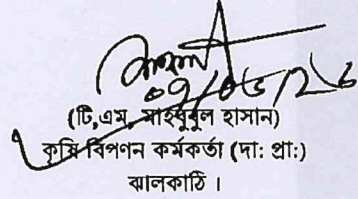 ০৭/০৬/২৬
(টি,এম, মাহবুবুল হাসান)
কৃষি বিপণন কর্মকর্তা (দা: প্রা:)
ঝালকাঠি ।